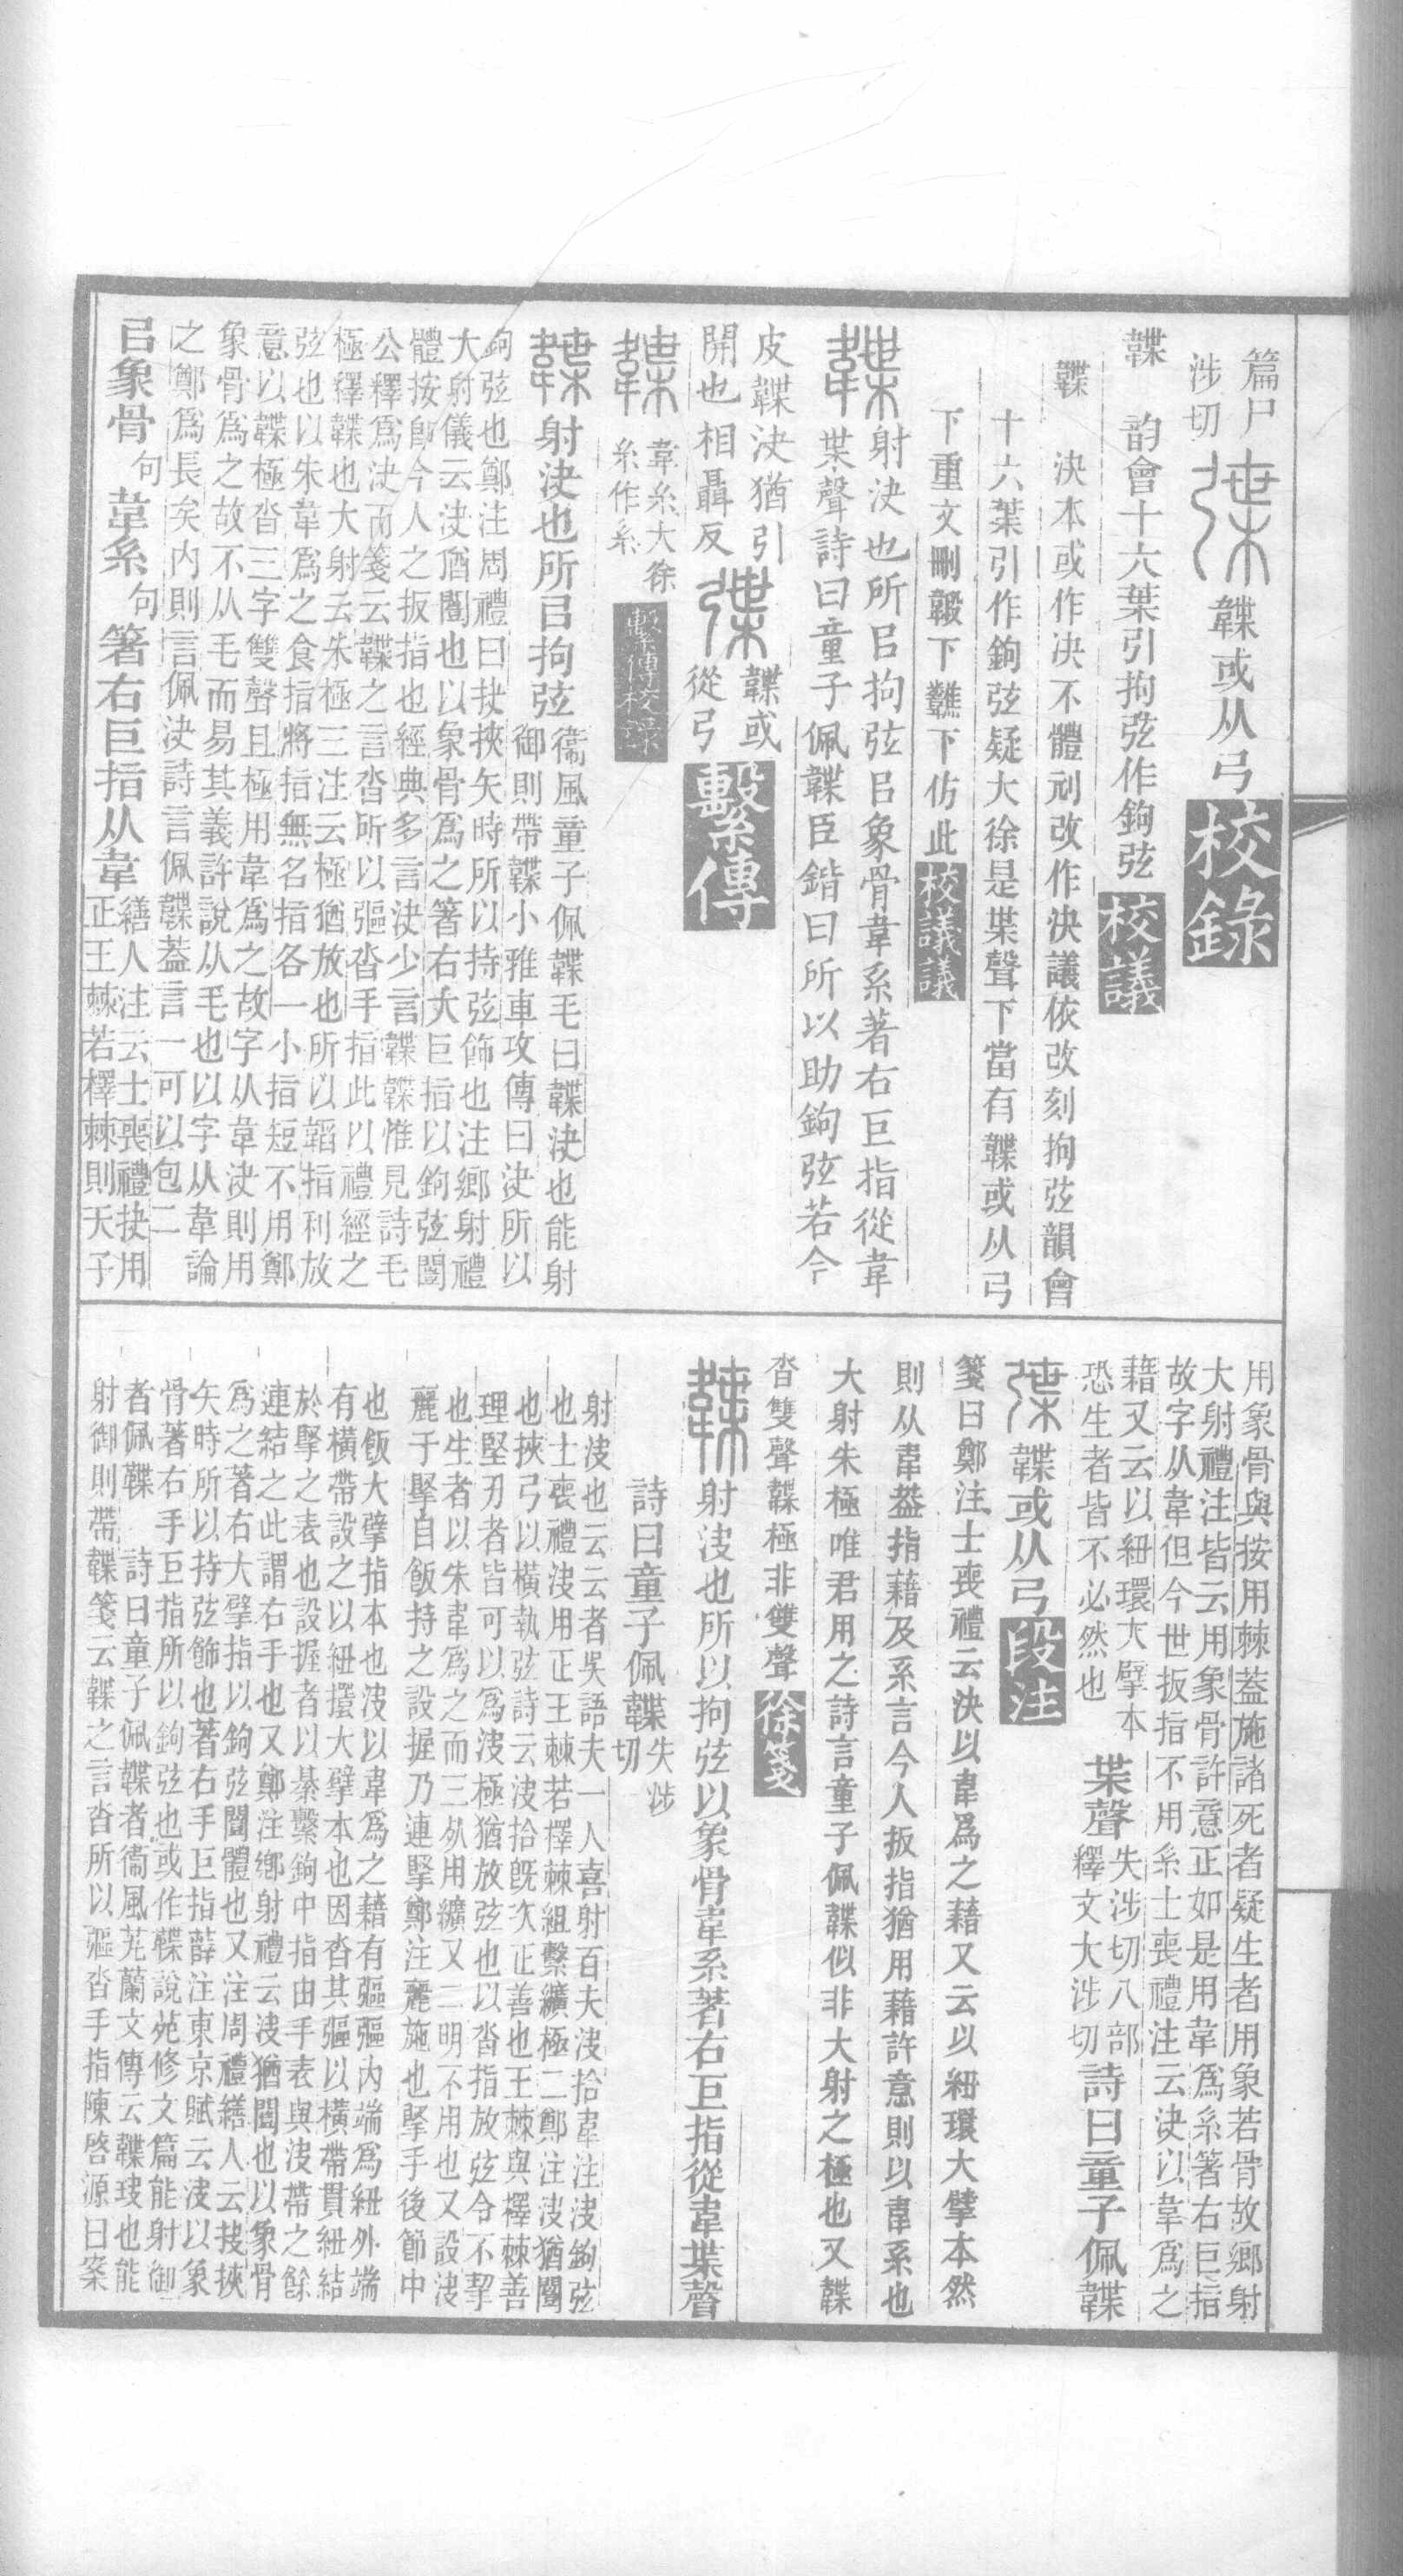 篇尸
涉切
韘或从弓 校錄
韘 韵會十六葉引拘弦作鉤弦 校議
韘 決本或作决不體刓改作決議依改刻拘弦韻會
十六葉引作鉤弦疑大徐是枼聲下當有韘或从弓
下重文刪韔下韤下仿此 校議議
射決也所㠯拘弦㠯象骨韋系著右巨指從韋
枼聲詩曰童子佩韘臣鍇曰所以助鉤弦若今
皮韘決猶引
開也相聶反
韘或
從弓 繫傳
韋糸大徐
糸作系 繫傳校錄
射決也所㠯拘弦
衞風童子佩韘毛曰韘決也能射
御則帶韘小雅車攻傳曰決所以
鉤弦也鄭注周禮曰抉挾矢時所以持弦飾也注鄉射禮
大射儀云決猶闓也以象骨爲之箸右大巨指以鉤弦闓
體按卽今人之扳指也經典多言決少言韘韘惟見詩毛
公釋爲決而箋云韘之言沓所以彄沓手指此以禮經之
極釋韘也大射云朱極三注云極猶放也所以韜指利放
弦也以朱韋爲之食指將指無名指各一小指短不用鄭
意以韘極沓三字雙聲且極用韋爲之故字从韋決則用
象骨爲之故不从毛而易其義許說从毛也以字从韋論
之鄭爲長矣内則言佩決詩言佩韘葢言一可以包二
㠯象骨句韋系句箸右巨指从韋
繕人注云士喪禮抉用
正王棘若檡棘則天子
用象骨與按用棘蓋施諸死者疑生者用象若骨故鄉射
大射禮注皆云用象骨許意正如是用韋爲系箸右巨指
故字从韋但今世扳指不用系士喪禮注云決以韋爲之
藉又云以紐環大擘本
恐生者皆不必然也
枼聲
失涉切八部
釋文大涉切
詩曰童子佩韘
韘或从弓 段注
箋曰鄭注士喪禮云決以韋爲之藉又云以紐環大擘本然
則从韋葢指藉及系言今人扳指猶用藉許意則以韋系也
大射朱極唯君用之詩言童子佩韘似非大射之極也又韘
沓雙聲韘極非雙聲 徐箋
射決也所以拘弦以象骨韋系著右巨指從韋枼聲
詩曰童子佩韘
失涉
切
射決也云云者吳語夫一人喜射百夫決拾韋注決鉤弦
也士喪禮決用正王棘若檡棘組繫纊極二鄭注決猶闓
也挾弓以橫執弦詩云決拾旣次正善也王棘與檡棘善
理堅刃者皆可以爲決極猶放弦也以沓指放弦令不挈
也生者以朱韋爲之而三死用纊又二明不用也又設決
麗于掔自飯持之設握乃連掔鄭注麗施也掔手後節中
也飯大擘指本也決以韋爲之藉有彄彄内端爲紐外端
有橫帶設之以紐擐大擘本也因沓其彄以橫帶貫紐結
於掔之表也設握者以綦繫鉤中指由手表與決帶之餘
連結之此謂右手也又鄭注鄉射禮云決猶闓也以象骨
爲之著右大擘指以鉤弦闓體也又注周禮繕人云抉挾
矢時所以持弦飾也著右手巨指薛注東京賦云決以象
骨著右手巨指所以鉤弦也或作韘說苑修文篇能射御
者佩韘 詩曰童子佩韘者衞風芄蘭文傳云韘玦也能
射御則帶韘箋云韘之言沓所以彄沓手指陳啓源曰案